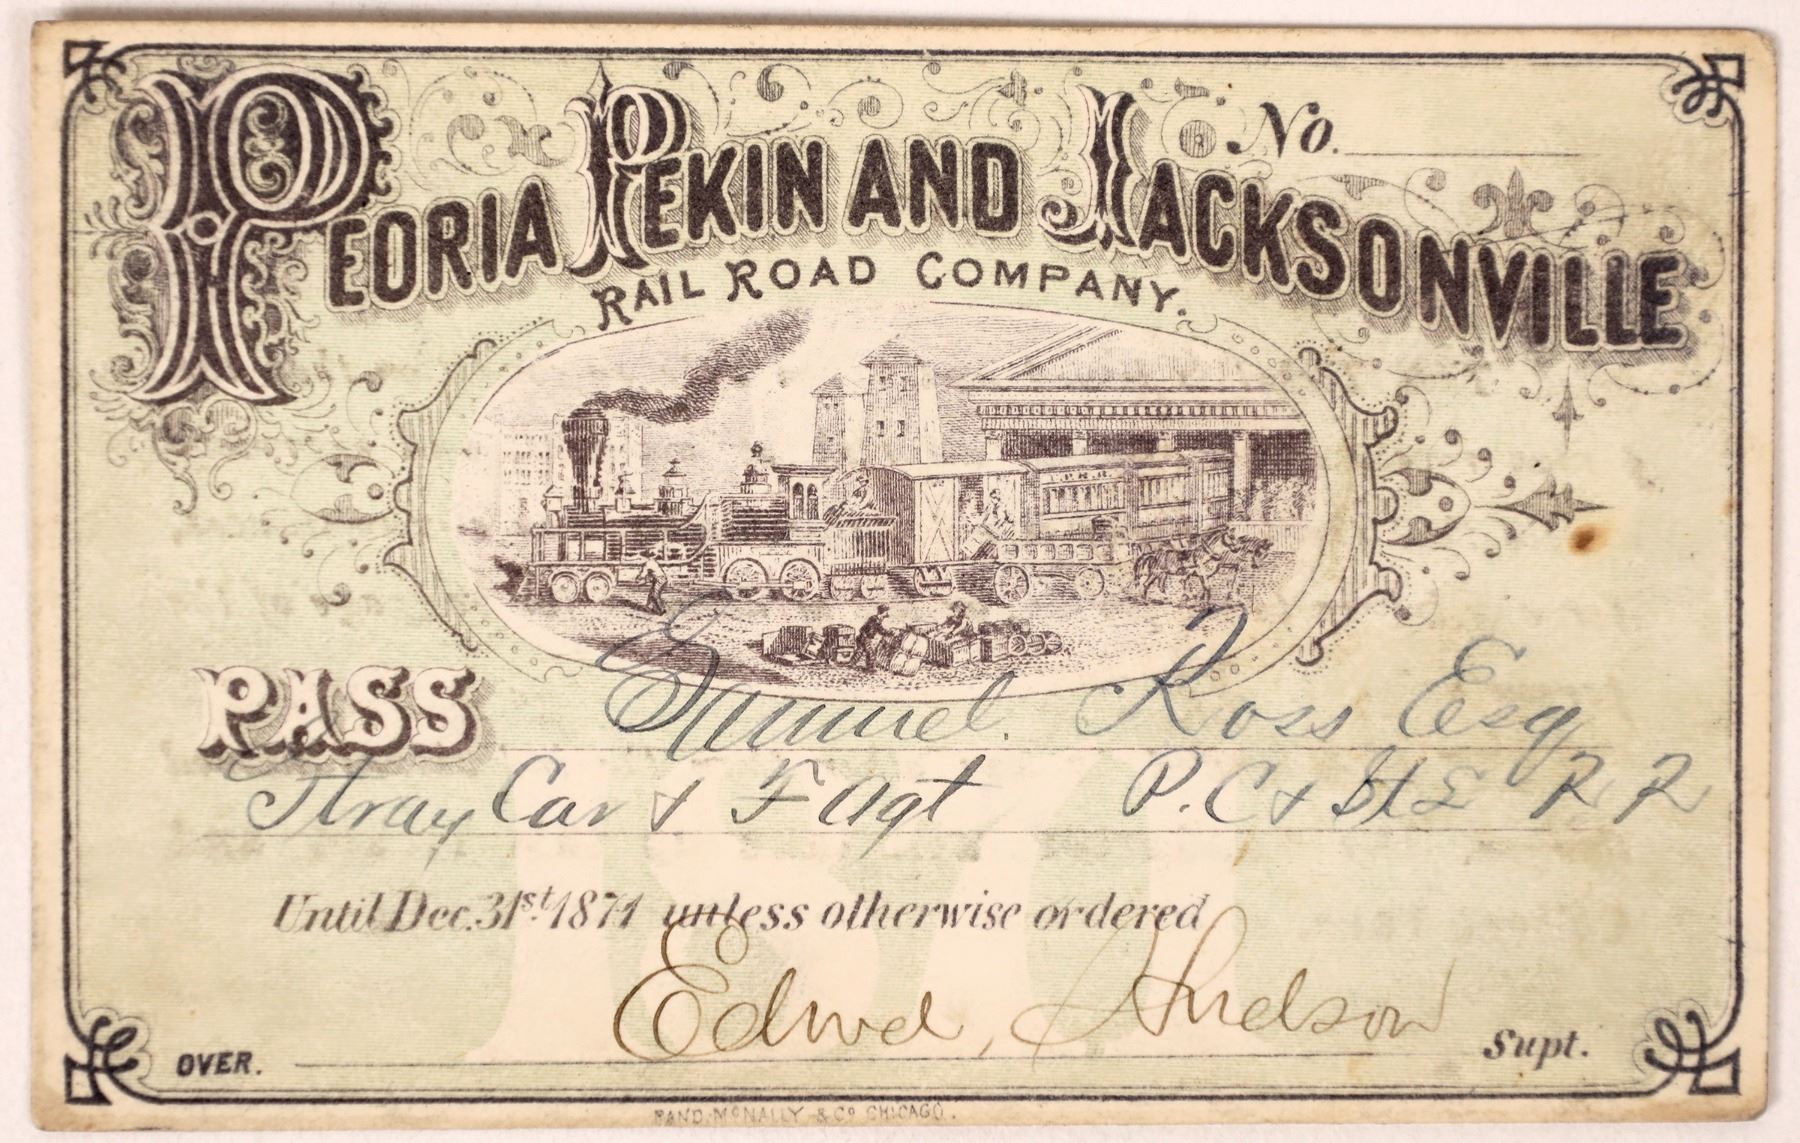 No.
PEORIA PEKIN AND JACKSONVILLE
RAIL ROAD COMPANY.
PASS Samuel Ross Esq
Stray Car & F Agt P. C & St L R R
Until Dec. 31st. 1871 unless otherwise ordered
Edwd, Hudson
OVER. Supt.
RAND, McNALLY & Co CHICAGO.